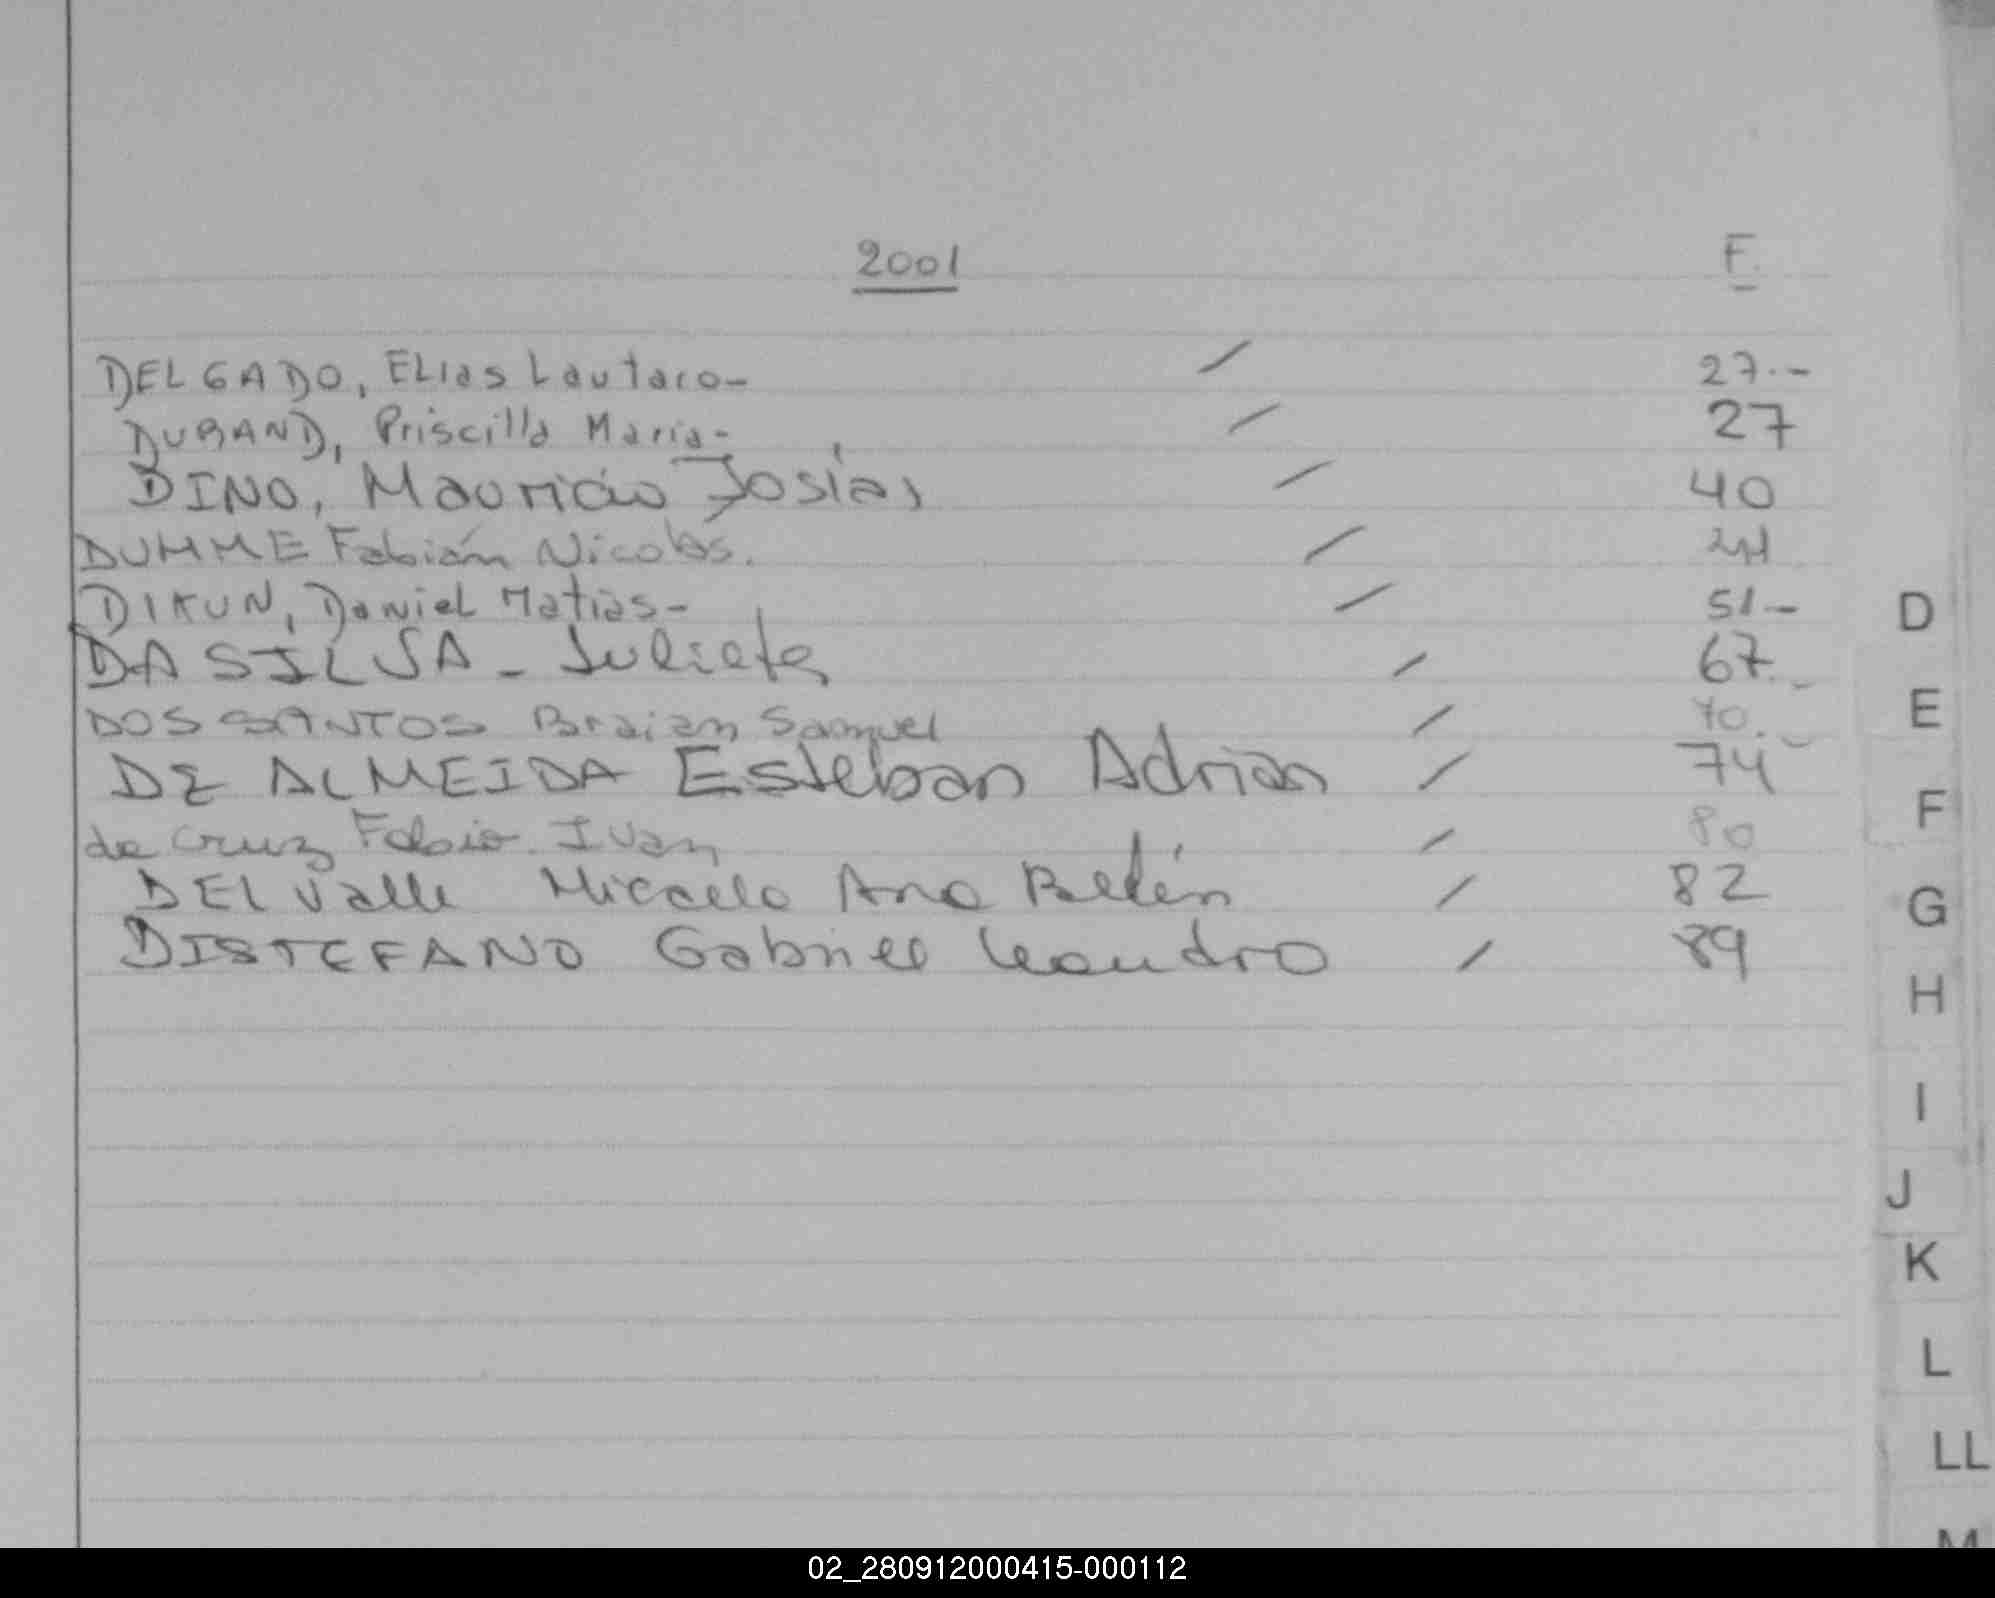 2001 F.
DELGADO, Elias Lautaro- / 27.-
DURAND, Priscilla Maria- / 27
DINO, Mauricio Josías / 40
DUMME Fabián Nicolás. /
DIKUN, Daniel Matias- / 51-
DA SILVA - Julieta / 67.-
DOS SANTOS Braian Samuel / 70.-
DE ALMEIDA Esteban Adrian / 74
de Cruz Fabio Ivan / 80
DEL Valle Micaela Ana Belén / 82
DISTEFANO Gabriel Leandro / 89
D
E
F
G
H
I
J
K
L
LL
M
02_280912000415-000112